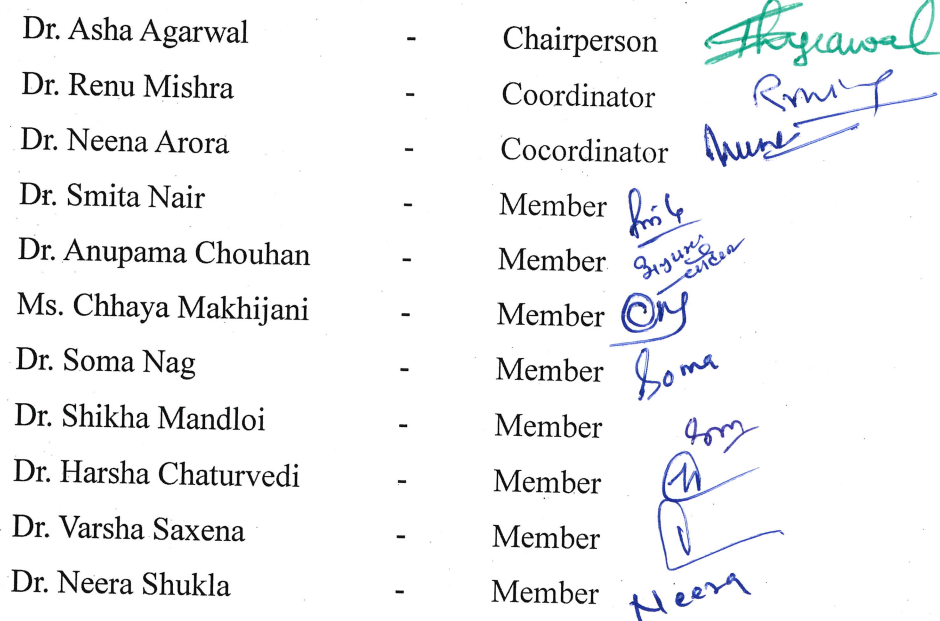 Dr. Asha Agarwal - Chairperson Agrawal
Dr. Renu Mishra - Coordinator
Dr. Neena Arora - Cocordinator
Dr. Smita Nair - Member
Dr. Anupama Chouhan - Member
Ms. Chhaya Makhijani - Member CM
Dr. Soma Nag - Member Soma
Dr. Shikha Mandloi - Member
Dr. Harsha Chaturvedi - Member
Dr. Varsha Saxena - Member
Dr. Neera Shukla - Member Neera